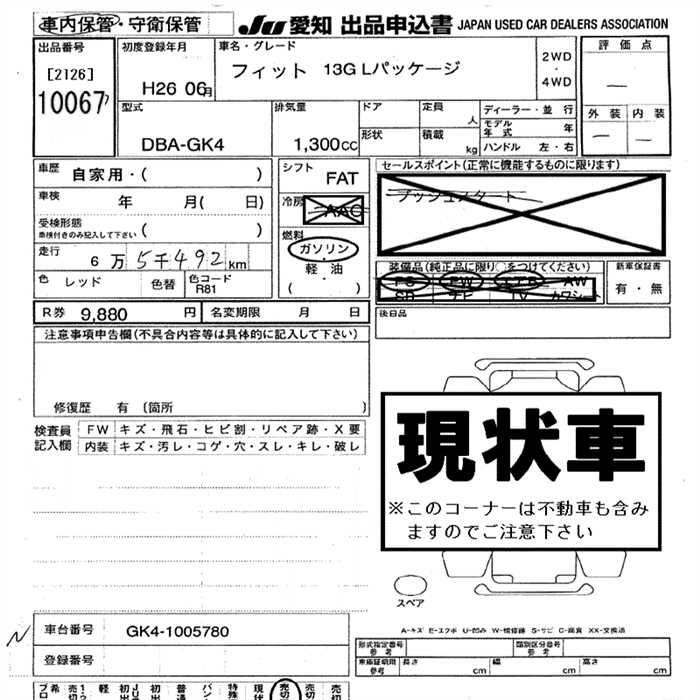 車内保管・守衛保管
JU 愛知 出品申込書 JAPAN USED CAR DEALERS ASSOCIATION
出品番号
[2126]
10067
初度登録年月
H26 06月
車名・グレード
フィット 13G Lパッケージ
2WD
・
4WD
評価点
—
外装 内装
— —
型式
DBA-GK4
排気量
1,300cc
ドア
形状
定員
人
積載
kg
ディーラー・並行
モデル年式 年
ハンドル 左・右
車歴
自家用・( )
車検 年 月( 日)
受検形態
車検付きのみ記入して下さい ( )
走行
6万5千492km
色 レッド 色替 色コード
R81
シフト
FAT
冷房
AAC
燃料
ガソリン・
軽油
( )
セールスポイント(正常に機能するものに限ります)
プッシュスタート
装備品(純正品に限り○をつけてください)
PS PW エアB AW
SR ナビ TV カワシート
新車保証書
有・無
後日品
R券 9,880 円
名変期限 月 日
注意事項申告欄(不具合内容等は具体的に記入して下さい)
修復歴 有 〔箇所 〕
検査員
記入欄
FW キズ・飛石・ヒビ割・リペア跡・X要
内装 キズ・汚レ・コゲ・穴・スレ・キレ・破レ
現状車
※このコーナーは不動車も含み
ますのでご注意下さい
スペア
A-キズ E-エクボ U-凹み W-補修跡 S-サビ C-腐食 XX-交換済
車台番号 GK4-1005780
登録番号
形式指定番号
参考
類別区分番号
参考
車庫証明用
参考
長さ cm 幅 cm 高さ cm